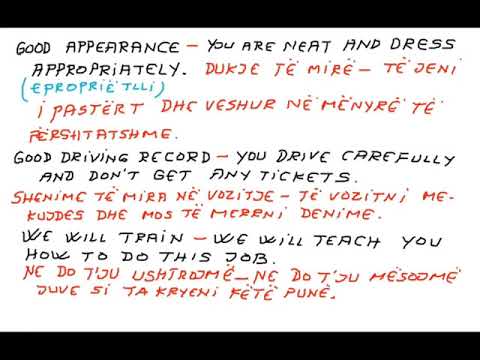 GOOD APPEARANCE – YOU ARE NEAT AND DRESS
APPROPRIATELY. DUKJE TË MIRË – TË JENI
(EPROPRIË TLLI)
I PASTËRT DHE VESHUR NË MËNYRË TË
PËRSHTATSHME.
GOOD DRIVING RECORD – YOU DRIVE CAREFULLY
AND DON'T GET ANY TICKETS.
SHENIME TË MIRA NË VOZITJE – TË VOZITNI ME-
KUJDES DHE MOS TË MERRNI DENIME.
WE WILL TRAIN – WE WILL TEACH YOU
HOW TO DO THIS JOB.
NE DO T'JU USHTROJMË – NE DO T'JU MËSOJMË
JUVE SI TA KRYENI KËTË PUNË.